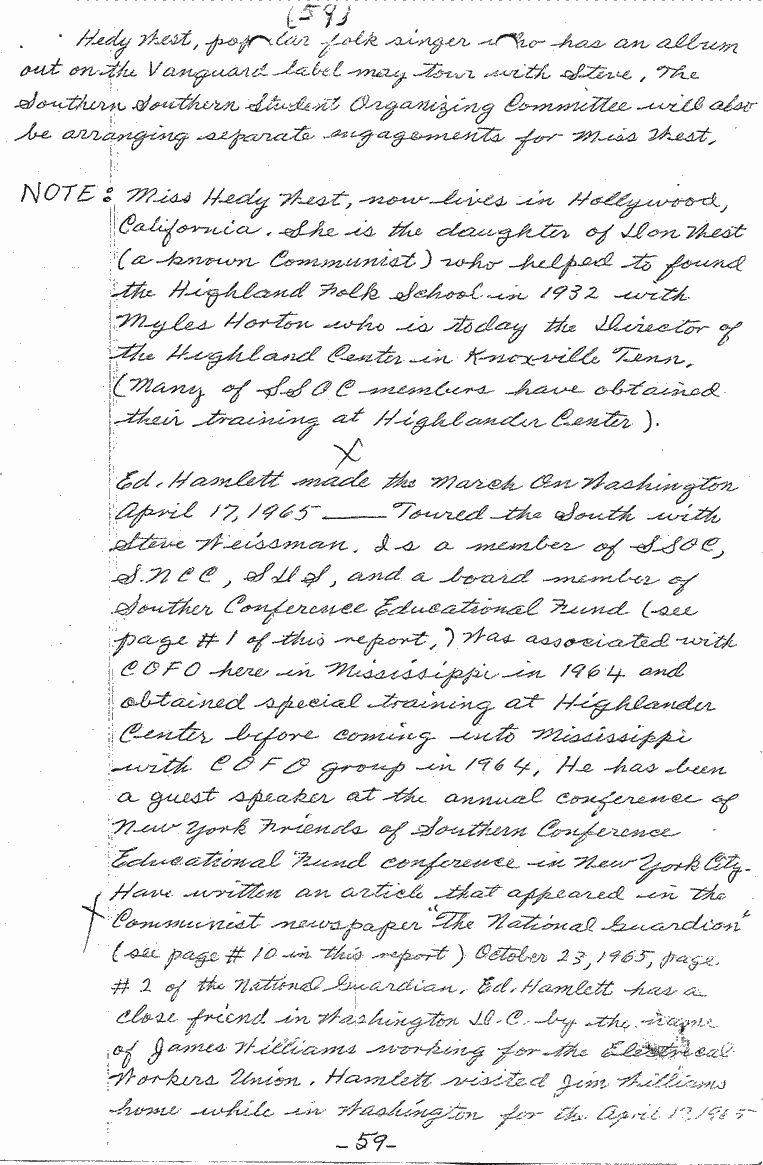 (59)
Hedy West, popular folk singer who has an album
out on the Vanguard label may tour with Steve. The
Southern Southern Student Organizing Committee will also
be arranging separate engagements for Miss West.
NOTE: Miss Hedy West, now lives in Hollywood,
California. She is the daughter of Don West
(a known Communist) who helped to found
the Highland Folk School in 1932 with
Myles Horton who is today the Director of
the Highland Center in Knoxville Tenn.
(Many of SSOC members have obtained
their training at Highlander Center).
X
Ed. Hamlett made the March On Washington
April 17, 1965 ___ Toured the South with
Steve Weissman. Is a member of SSOC,
S.N C C, S D S, and a board member of
Souther Conference Educational Fund (see
page # 1 of this report,) Was associated with
COFO here in Mississippi in 1964 and
obtained special training at Highlander
Center before coming into Mississippi
with COFO group in 1964. He has been
a guest speaker at the annual conference of
New York Friends of Southern Conference
Educational Fund conference in New York City.
Have written an article that appeared in the
X Communist newspaper "The National Guardion"
(see page # 10 in this report) October 23, 1965, page
# 2 of the National Guardian. Ed. Hamlett has a
close friend in Washington D.C. by the name
of James Williams working for the Electrical
Workers Union. Hamlett visited Jim Williams
home while in Washington for the April 17, 1965
-59-